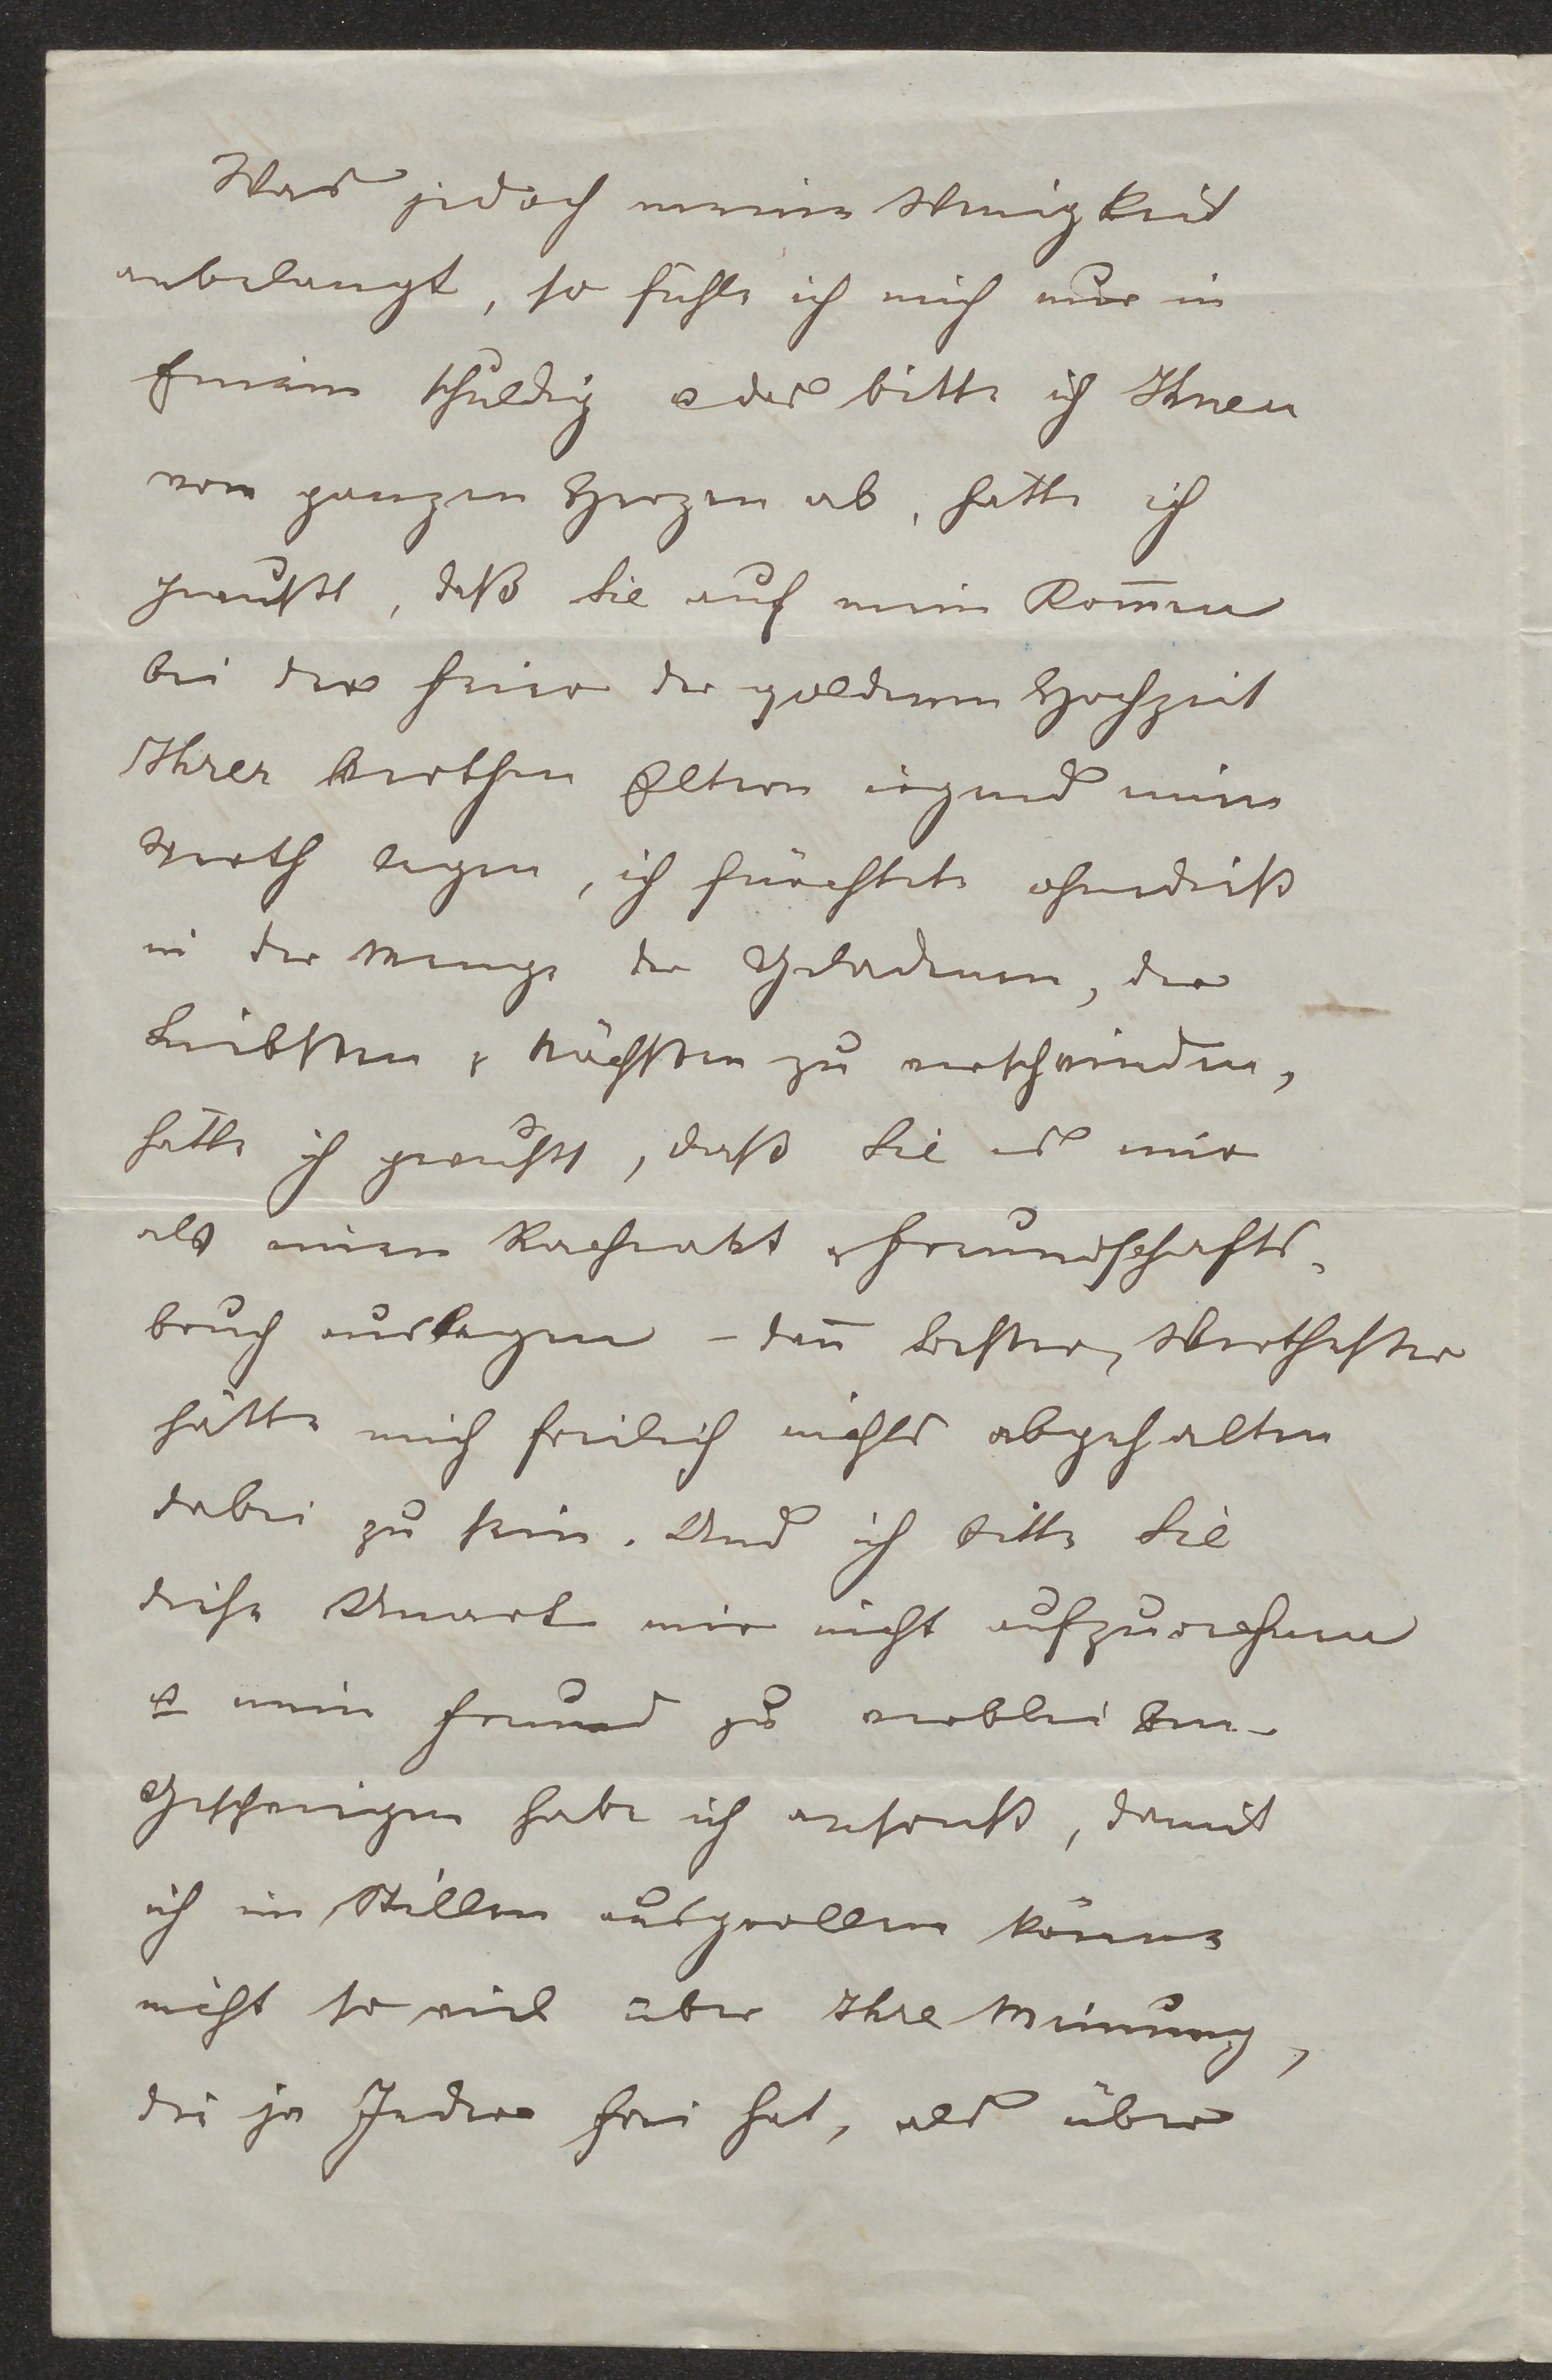 Was jedoch meine Wenigkeit
anbelangt, so fühle ich mich nur in
Einem schuldig & das bitte ich Ihnen
vom ganzen Herzen ab, hätte ich
gewußt, daß Sie auf mein Kom̅en
bei der Feier der goldenen Hochzeit
Ihrer werthen Eltern irgend einen
Werth legen, ich fürchtete ohnedieß
in der Menge der Geladenen, der
Liebsten & Nächsten zu verschwinden,
hätte ich gewußt, daß Sie es mir
als einen Racheakt & Freundschafts-
bruch auslegen – dan̅ Bester, Werthester
hätte mich freilich nichts abgehalten
dabei zu sein. Und ich bitte Sie
diese Unart mir nicht aufzurechnen
& mein Freund zu verbleiben.
Geschwiegen habe ich ansonst, damit
ich im Stillen ausgrollen könne
nicht so viel über Ihre Meinung,
die ja Jeder frei hat, als über